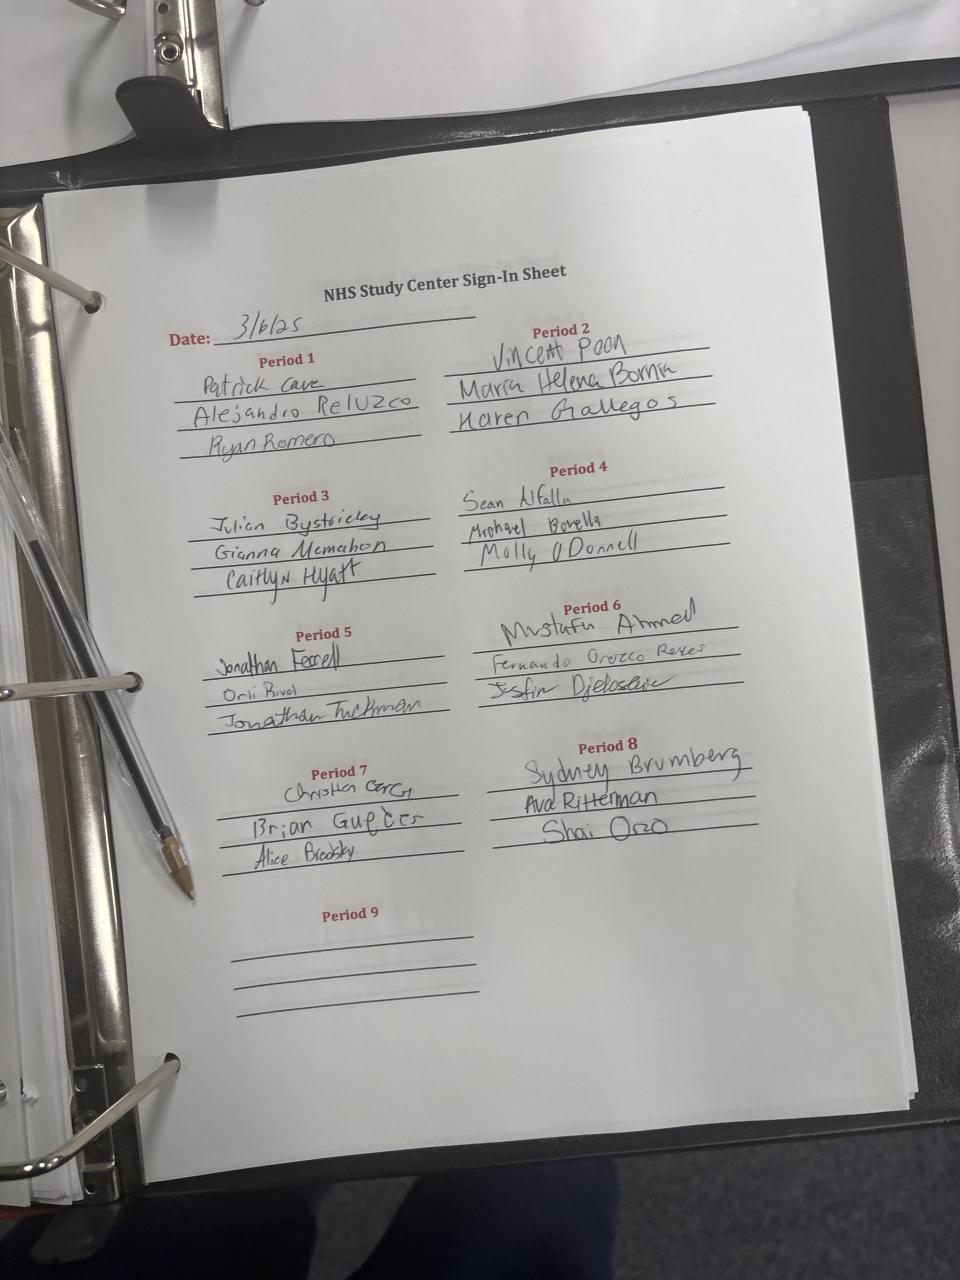 NHS Study Center Sign-In Sheet
Date: 3/6/25
Period 1
Patrick Cave
Alejandro Reluzco
Ryan Romero
Period 2
Vincent Poon
Maria Helena Bornia
Karen Gallegos
Period 3
Julian Bystricky
Gianna Mcmahon
Caitlyn Hyatt
Period 4
Sean Alfalla
Michael Borella
Molly O Donnell
Period 5
Jonathan Ferrell
Orli
Jonathan Tuckman
Period 6
Mustafa Ahmed
Fernando Orozco Reyes
Period 7
Christian
Brian
Alice Brodsky
Period 8
Sydney Brumberg
Ava Ritterman
Shai Orzo
Period 9